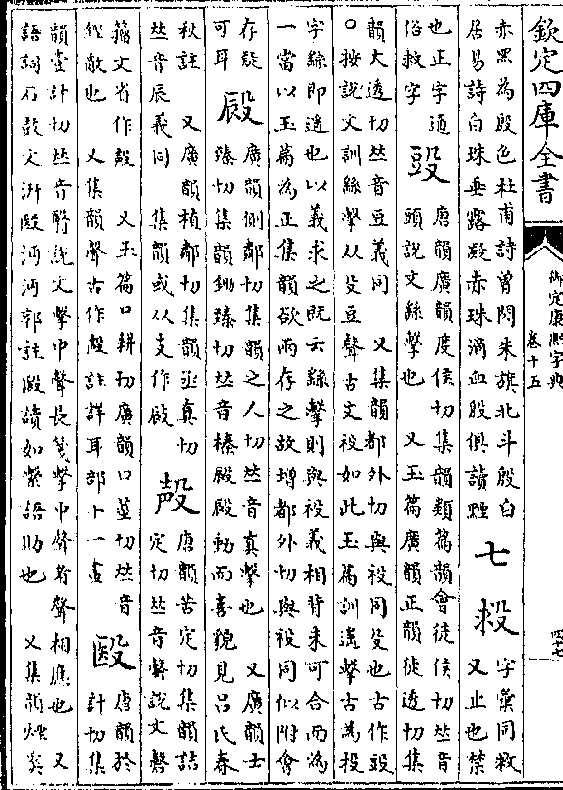 欽定四庫全書
御定康熙字典
卷十五
四十七
赤黑為殷色杜甫詩曾閃朱旗北斗殷白
居易詩白珠垂露凝赤珠滴血殷俱讀黫
七
𣪘
字彙同救
又止也禁
也正字通
俗救字
㪷
唐韻廣韻度侯切集韻類篇韻會徒侯切𠀤音
頭說文繇擊也　又玉篇廣韻正韻徒透切集
韻大透切𠀤音豆義同　又集韻都外切與祋同殳也古作㪷
○按說文訓繇擊从殳豆聲古文祋如此玉篇訓遥擊古為投
字繇即遥也以義求之既云繇擊則與祋義相背未可合而為
一當以玉篇為正集韻欲兩存之故增都外切與祋同似附會
存疑
可耳
㱾
廣韻側鄰切集韻之人切𠀤音真擊也　又廣韻士
臻切集韻鉏臻切𠀤音榛㱾㱾動而喜貌見呂氏春
秋註　又廣韻植鄰切集韻丞真切
𠀤音辰義同　集韻或从攴作敐
㱿
唐韻苦定切集韻詰
定切𠀤音磬說文磬
籀文省作殸　又玉篇口耕切廣韻口莖切𠀤音
鏗敲也　又集韻聲古作殸註詳耳部十一畫
殹
唐韻於
計切集
韻壹計切𠀤音翳說文擊中聲長箋擊中發者聲相應也　又
語詞石鼓文汧殹沔沔郭註殹讀如繄語助也　又集韻煙奚